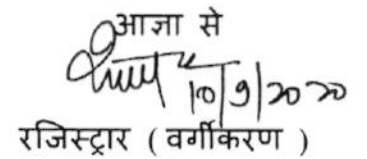 आज्ञा से
10/9/2020
रजिस्ट्रार ( वर्गीकरण )